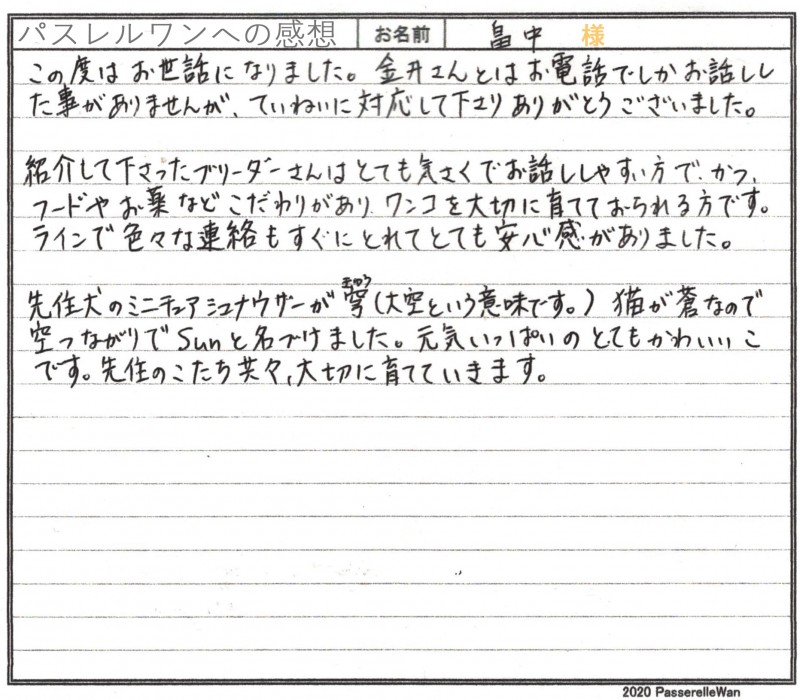 パスレルワンへの感想 お名前 畠中 様
この度は お世話に なりました。 金井さんとは お電話でしか お話しし
た事が ありませんが、ていねいに 対応して下さり ありがとう ございました。
紹介して下さったブリーダーさんはとても気さくでお話ししやすい方で、かつ、
フードや お薬 など こだわりがあり、ワンコを大切に育てておられる方です。
ラインで色々な連絡もすぐにとれてとても安心感がありました。
先住犬のミニチュアシュナウザーが 穹(大空という意味です。) 猫が蒼なので
空つながりで Sunと名づけました。元気いっぱいの とてもかわいいこ
です。先住のこたち共々、大切に育てていきます。
2020 PasserelleWan